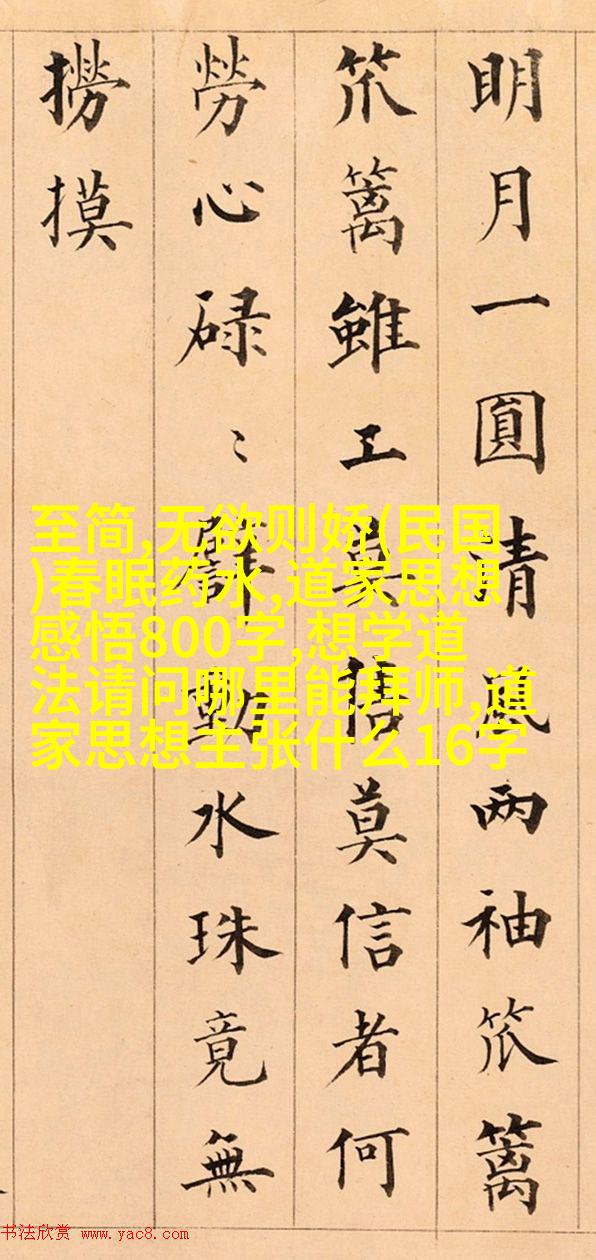 明月一圓清風两袖笊篱
笊篱雖工信莫信者何
勞心碌〻水珠竟無
撈摸
至简,无欲则娇(民国
)春眠药水,道家思想
感悟800字,想学道
法请问哪里能拜师,道
家思想主张什么16字
书法欣赏 www.yac8.com